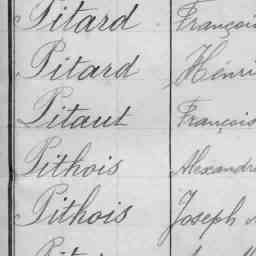 Pitard François
Pitard Henri
Pitaut François
Pithois Alexandre
Pithois Joseph